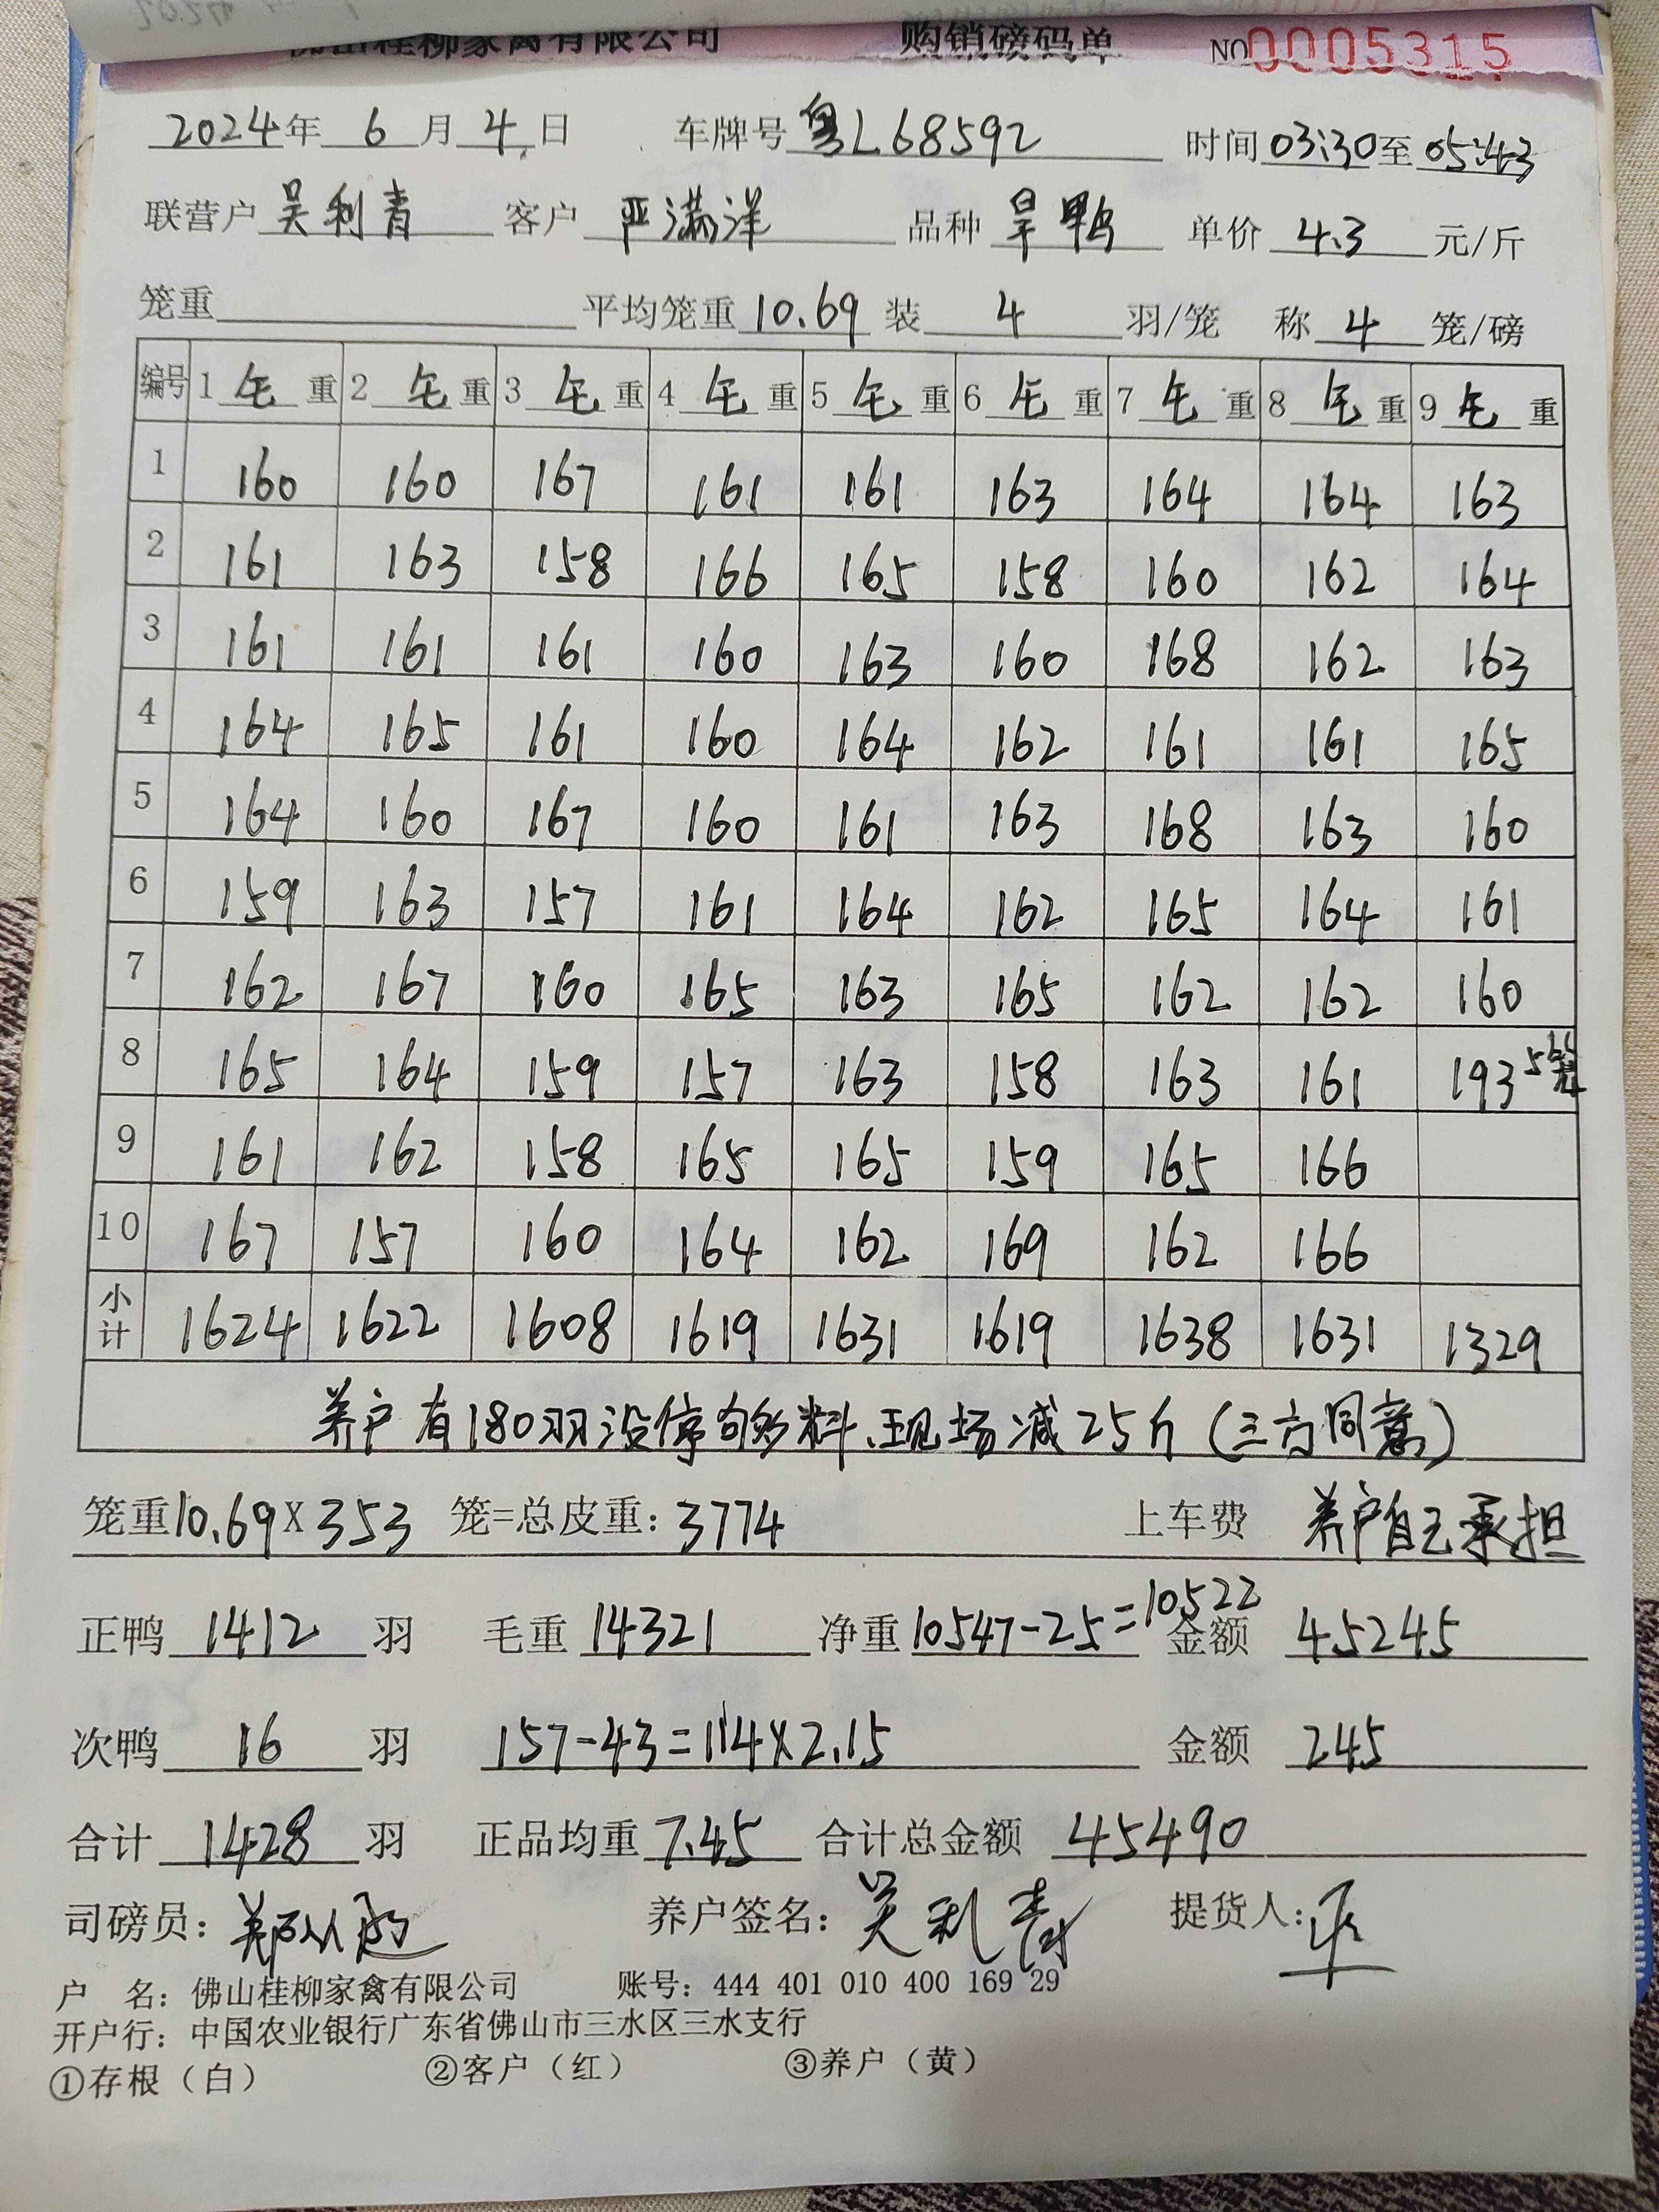 佛山桂柳家禽有限公司 购销磅码单 NO 0005315
2024年 6 月 4 日 车牌号 粤L68592 时间 03:30 至 05:43
联营户 吴利青 客户 严满洋 品种 旱鸭 单价 4.3 元/斤
笼重 平均笼重 10.69 装 4 羽/笼 称 4 笼/磅
编号 1 毛 重 2 毛 重 3 毛 重 4 毛 重 5 毛 重 6 毛 重 7 毛 重 8 毛 重 9 毛 重
1 160 160 167 161 161 163 164 164 163
2 161 163 158 166 165 158 160 162 164
3 161 161 161 160 163 160 168 162 163
4 164 165 161 160 164 162 161 161 165
5 164 160 167 160 161 163 168 163 160
6 159 163 157 161 164 162 165 164 161
7 162 167 160 165 163 165 162 162 160
8 165 164 159 157 163 158 163 161 193 5笼
9 161 162 158 165 165 159 165 166
10 167 157 160 164 162 169 162 166
小计 1624 1622 1608 1619 1631 1619 1638 1631 1329
养户有180羽没停够料、现场减25斤(三方同意)
笼重10.69X353 笼=总皮重: 3774 上车费 养户自己承担
正鸭 1412 羽 毛重 14321 净重 10547-25=10522 金额 45245
次鸭 16 羽 157-43=114X2.15 金额 245
合计 1428 羽 正品均重 7.45 合计总金额 45490
司磅员: 养户签名: 吴利青 提货人:
户 名: 佛山桂柳家禽有限公司 账号: 444 401 010 400 169 29
开户行: 中国农业银行广东省佛山市三水区三水支行
①存根(白) ②客户(红) ③养户(黄)